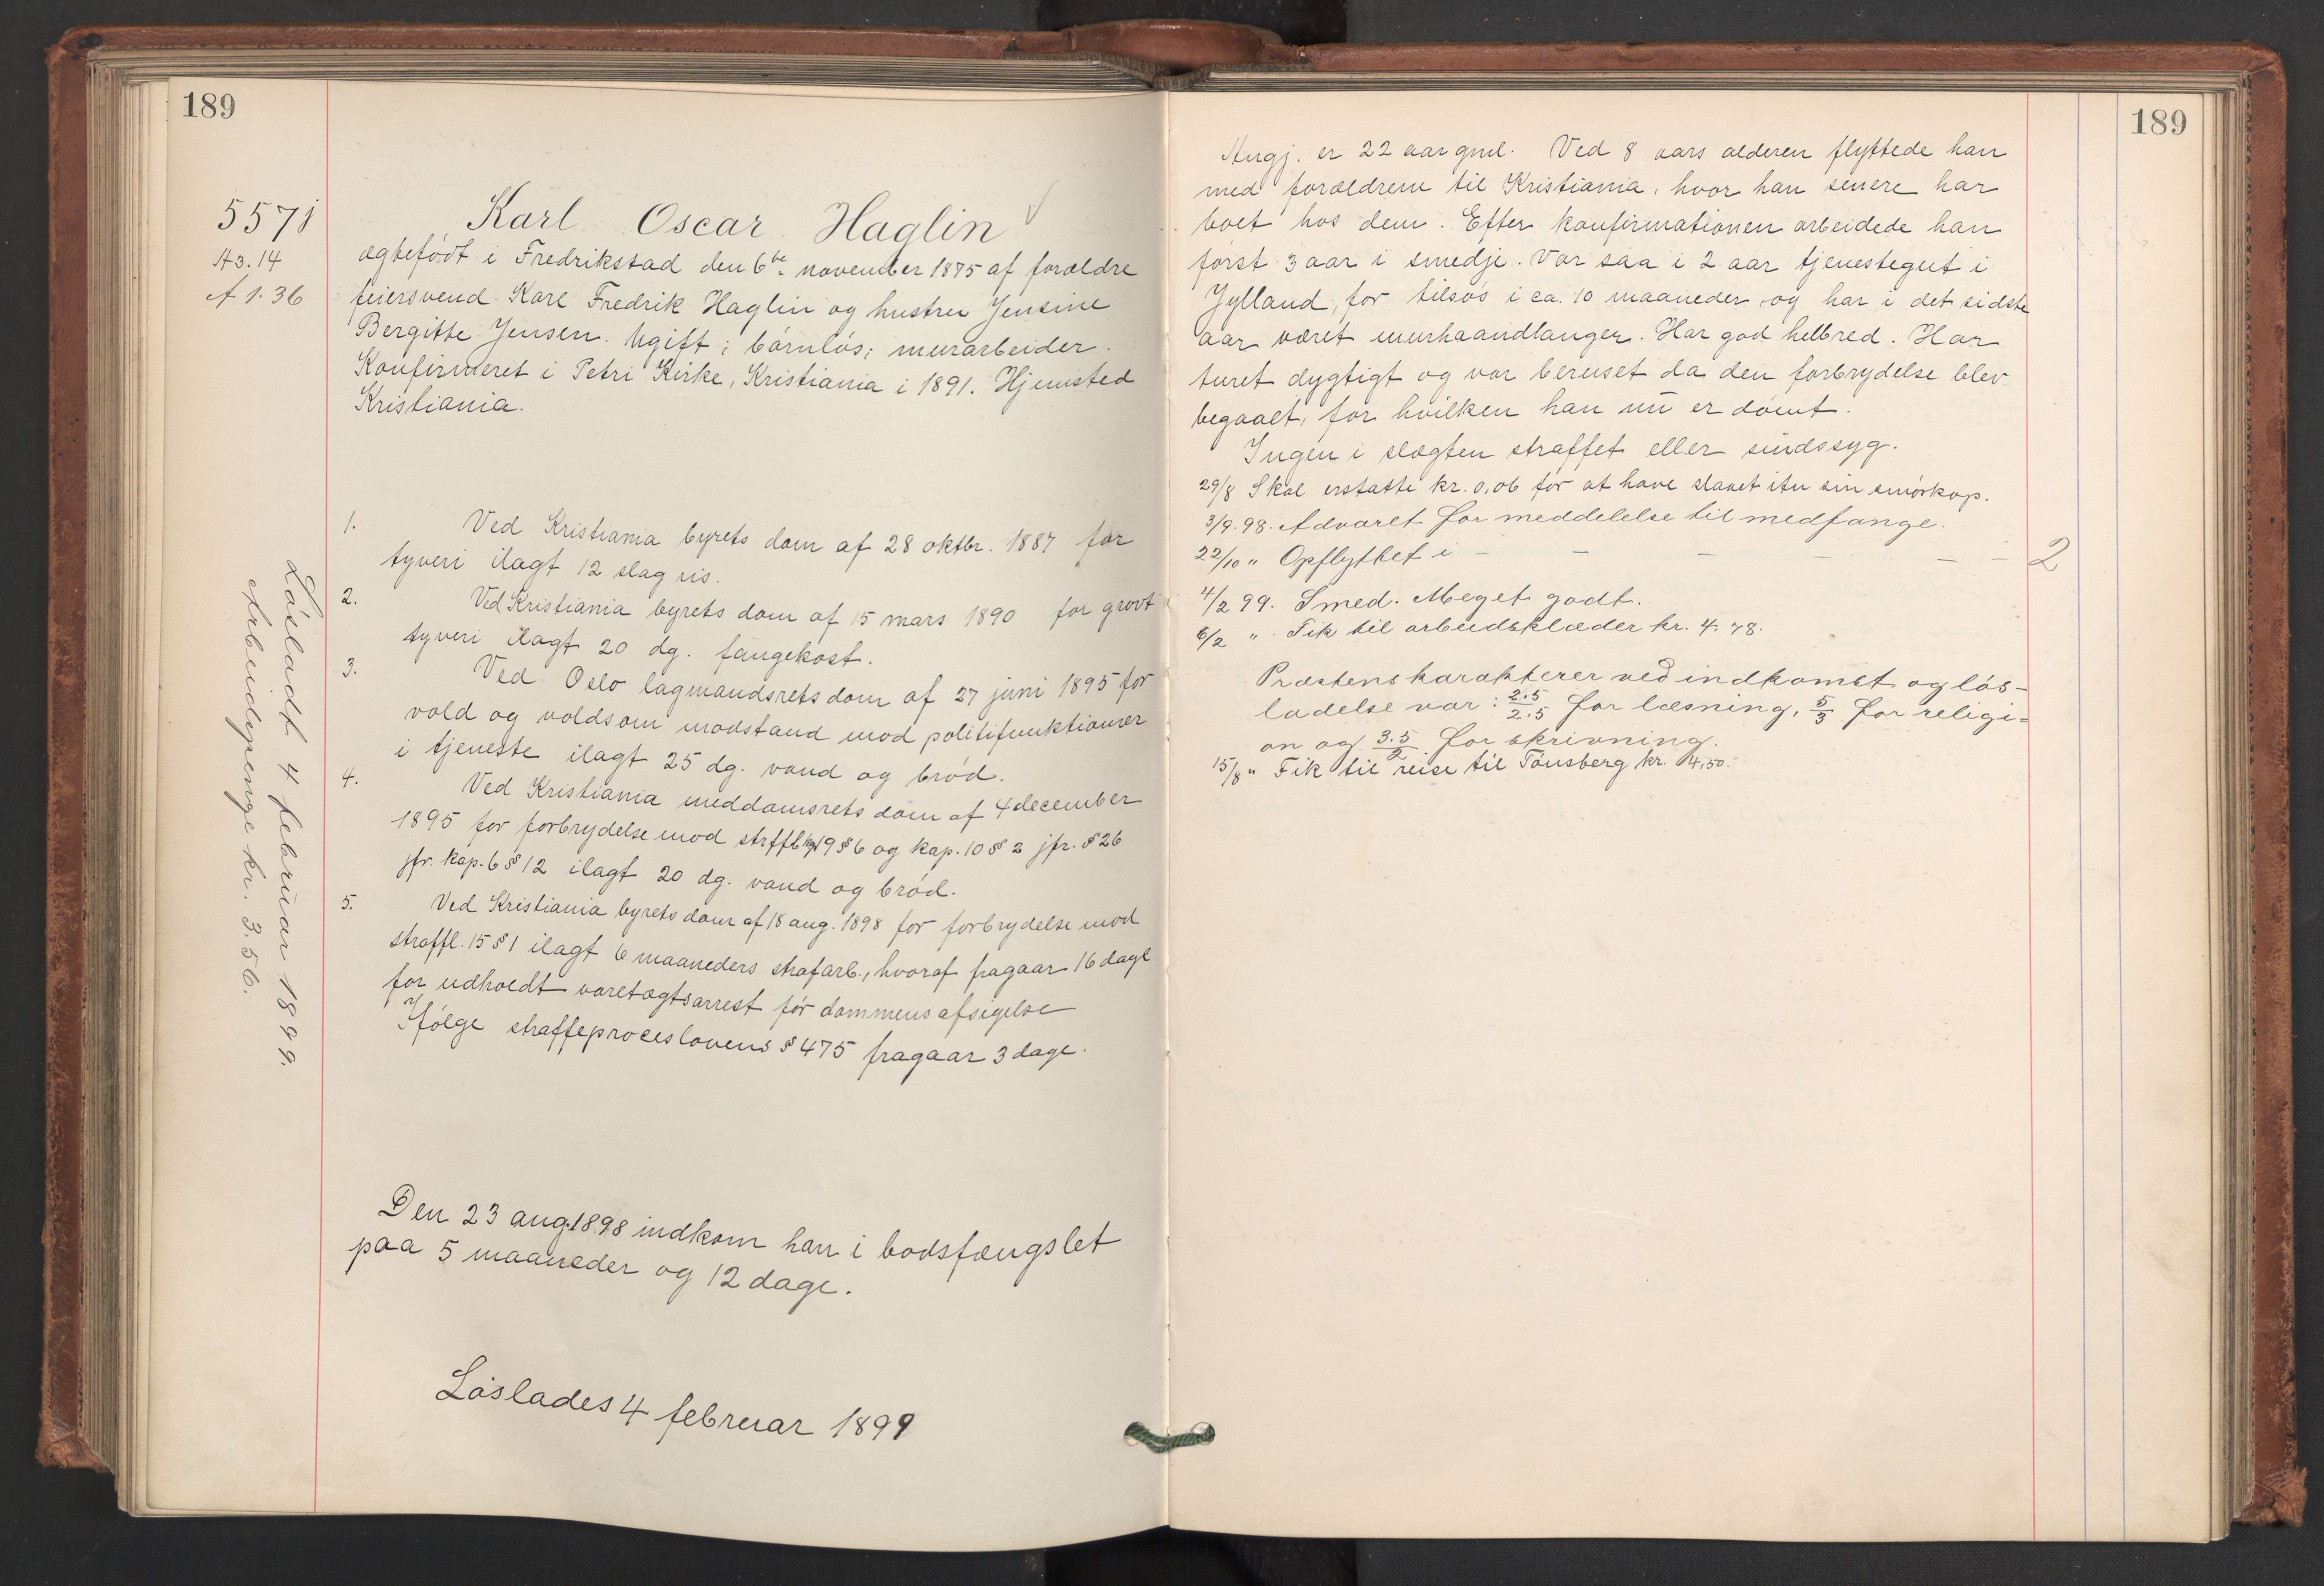 189
5571
A 3. 14
A 1. 36
Karl Oscar Haglin
ægtefødt i Fredrikstad den 6te november 1875 af forældre
feiersvend Karl Fredrik Haglin og hustru Jensine
Bergitte Jensen. Ugift; børnløs; murarbeider.
Konfirmeret i Petri Kirke, Kristiania i 1891. Hjemsted
Kristiania.
1. Ved Kristiania byrets dom af 28 oktbr. 1887 for
tyveri ilagt 12 slag ris.
2. Ved Kristiania byrets dom af 15 mars 1890 for grovt
tyveri ilagt 20 dg. fangekost.
3. Ved Oslo lagmandsrets dom af 27 juni 1895 for
vold og voldsom modstand mod politifunktionær
i tjeneste ilagt 25 dg. vand og brød.
4. Ved Kristiania meddomsrets dom af 4 december
1895 for forbrydelse mod strffl kp 19 § 6 og kap. 10 § 2 jfr. § 26
jfr. kap. 6 § 12 ilagt 20 dg. vand og brød.
5. Ved Kristiania byrets dom af 18 aug. 1898 for forbrydelse mod
straffl. 15 § 1 ilagt 6 maaneders strafarb., hvoraf fragaar 16 dage
for udholdt varetægtsarrest før dommens afsigelse
Ifølge straffeproceslovens § 475 fragaar 3 dage.
Den 23 aug. 1898 indkom han i bodsfængslet
paa 5 maaneder og 12 dage.
Løslades 4 februar 1899
Løsladt 4 februar 1899.
Arbeidspenge kr. 3.56.
189
Angj. er 22 aar gml. Ved 8 aars alderen flyttede han
med forældrene til Kristiania, hvor han senere har
boet hos dem. Efter konfirmationen arbeidede han
først 3 aar i smedje. Var saa i 2 aar tjenestegut i
Jylland, for tilsøs i ca. 10 maaneder og har i det sidste
aar været murhaandlanger. Har god helbred. Har
turet dygtigt og var beruset da den forbrydelse blev
begaaet, for hvilken han nu er dømt.
Ingen i slægten straffet eller sindssyg.
29/8 Skal erstatte kr. 0,06 for at have slaaet itu sin smørkop.
3/9. 98. Advaret for meddelelse til medfange.
22/10 " Opflyttet i - - - - - - 2
4/2 99. Smed. Meget godt.
6/2 " Fik til arbeidsklæder kr. 4.78.
Præstens karakterer ved indkomst og løs-
ladelse var: 2.5/2.5 for læsning, 5/3 for religi=
on og 3.5/2 for skrivning.
15/8 " Fik til reise til Tønsberg kr. 4,50.